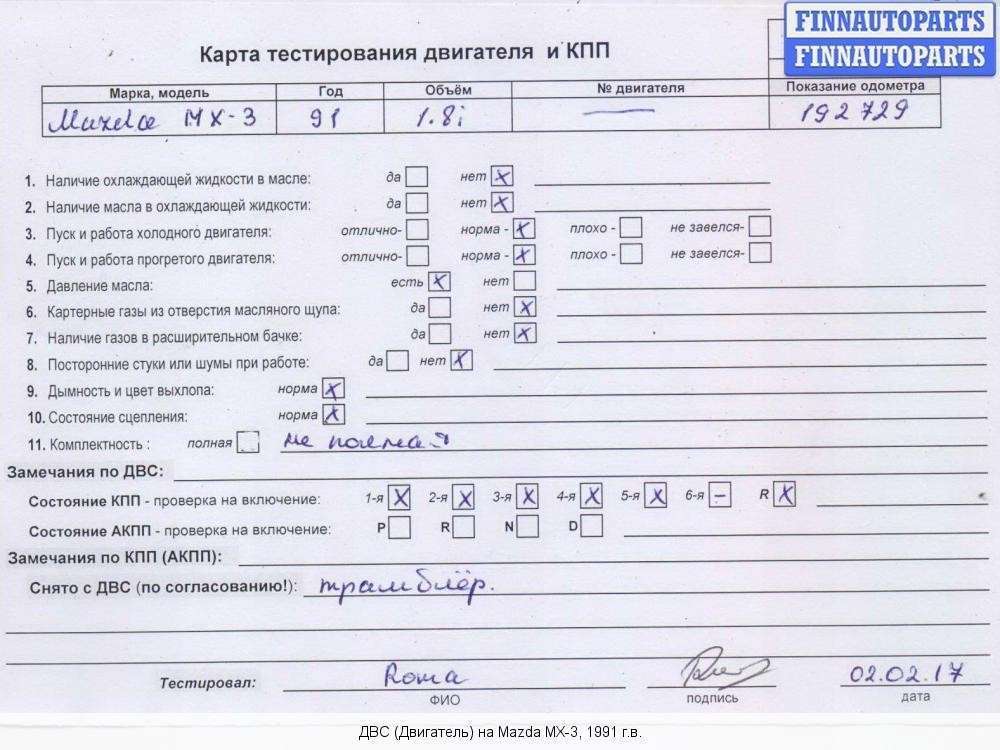 FINNAUTOPARTS
FINNAUTOPARTS
Карта тестирования двигателя и КПП
Марка, модель Год Объём № двигателя Показание одометра
Mazda MX-3 91 1.8i — 192729
1. Наличие охлаждающей жидкости в масле: да нет X
2. Наличие масла в охлаждающей жидкости: да нет X
3. Пуск и работа холодного двигателя: отлично- норма - X плохо - не завелся-
4. Пуск и работа прогретого двигателя: отлично- норма - X плохо - не завелся-
5. Давление масла: есть X нет
6. Картерные газы из отверстия масляного щупа: да нет X
7. Наличие газов в расширительном бачке: да нет X
8. Посторонние стуки или шумы при работе: да нет X
9. Дымность и цвет выхлопа: норма X
10. Состояние сцепления: норма X
11. Комплектность : полная не полная
Замечания по ДВС:
Состояние КПП - проверка на включение: 1-я X 2-я X 3-я X 4-я X 5-я X 6-я – R X
Состояние АКПП - проверка на включение: P R N D
Замечания по КПП (АКПП):
Снято с ДВС (по согласованию!): трамблёр.
Тестировал: Roma 02.02.17
ФИО подпись дата
ДВС (Двигатель) на Mazda MX-3, 1991 г.в.